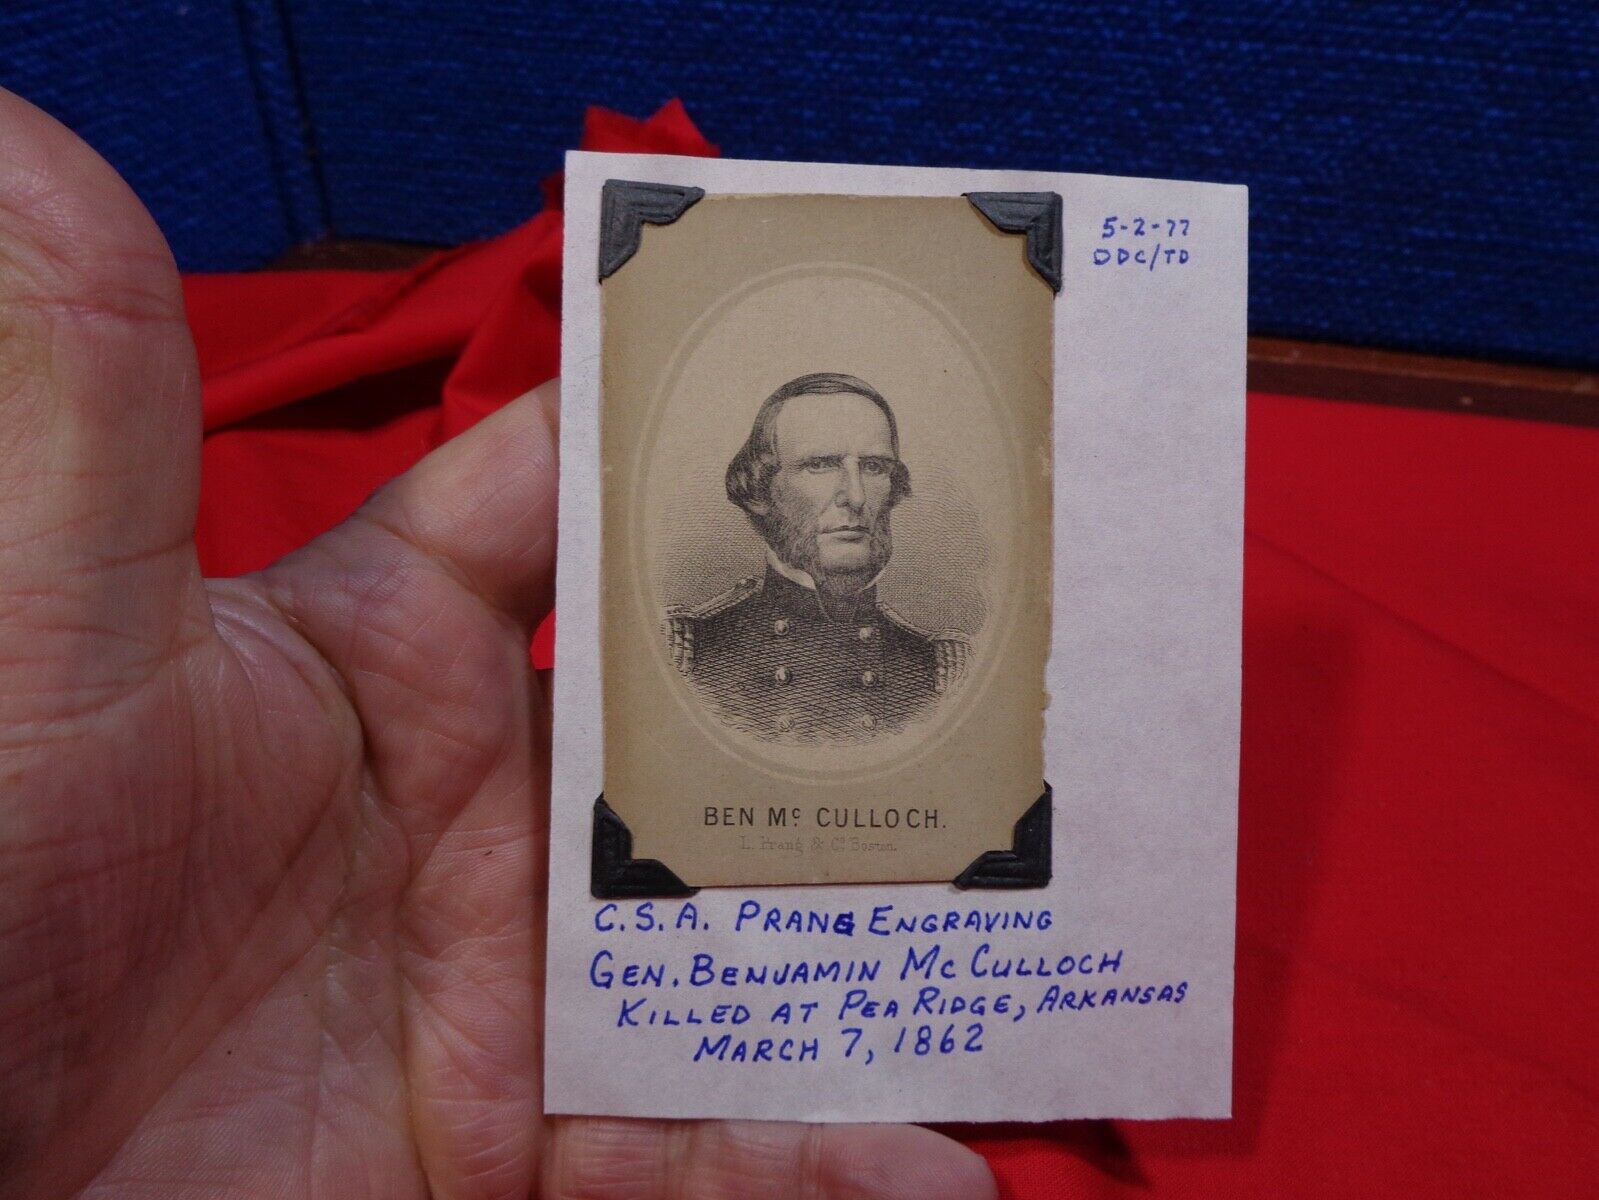 5-2-77
DDC/TD
BEN Mc CULLOCH.
L. Prang & Co Boston.
C.S.A. PRANG ENGRAVING
GEN. BENJAMIN MC CULLOCH
KILLED AT PEA RIDGE, ARKANSAS
MARCH 7, 1862